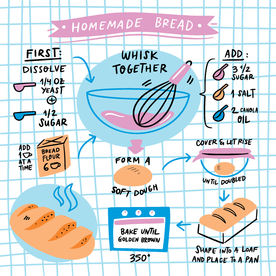 HOMEMADE BREAD
FIRST:
DISSOLVE
1/4 OZ
YEAST
+
1/2
SUGAR
WHISK
TOGETHER
ADD:
3 1/2
SUGAR
1 SALT
2 CANOLA
OIL
ADD
1
AT A
TIME
BREAD
FLOUR
6
FORM A
SOFT DOUGH
COVER & LET RISE
UNTIL DOUBLED
SHAPE INTO A LOAF
AND PLACE TO A PAN
BAKE UNTIL
GOLDEN BROWN
350°